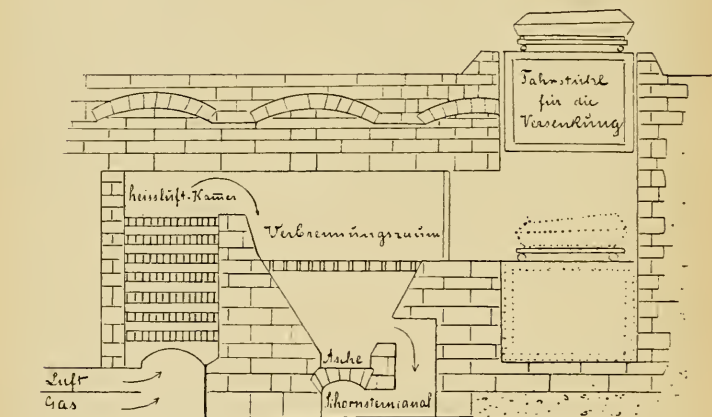 Fahrstuhl
für die
Versenkung
heissluft-Kam̄er
Verbrennungsraum
Asche
Luft
Gas
Schornsteincanal